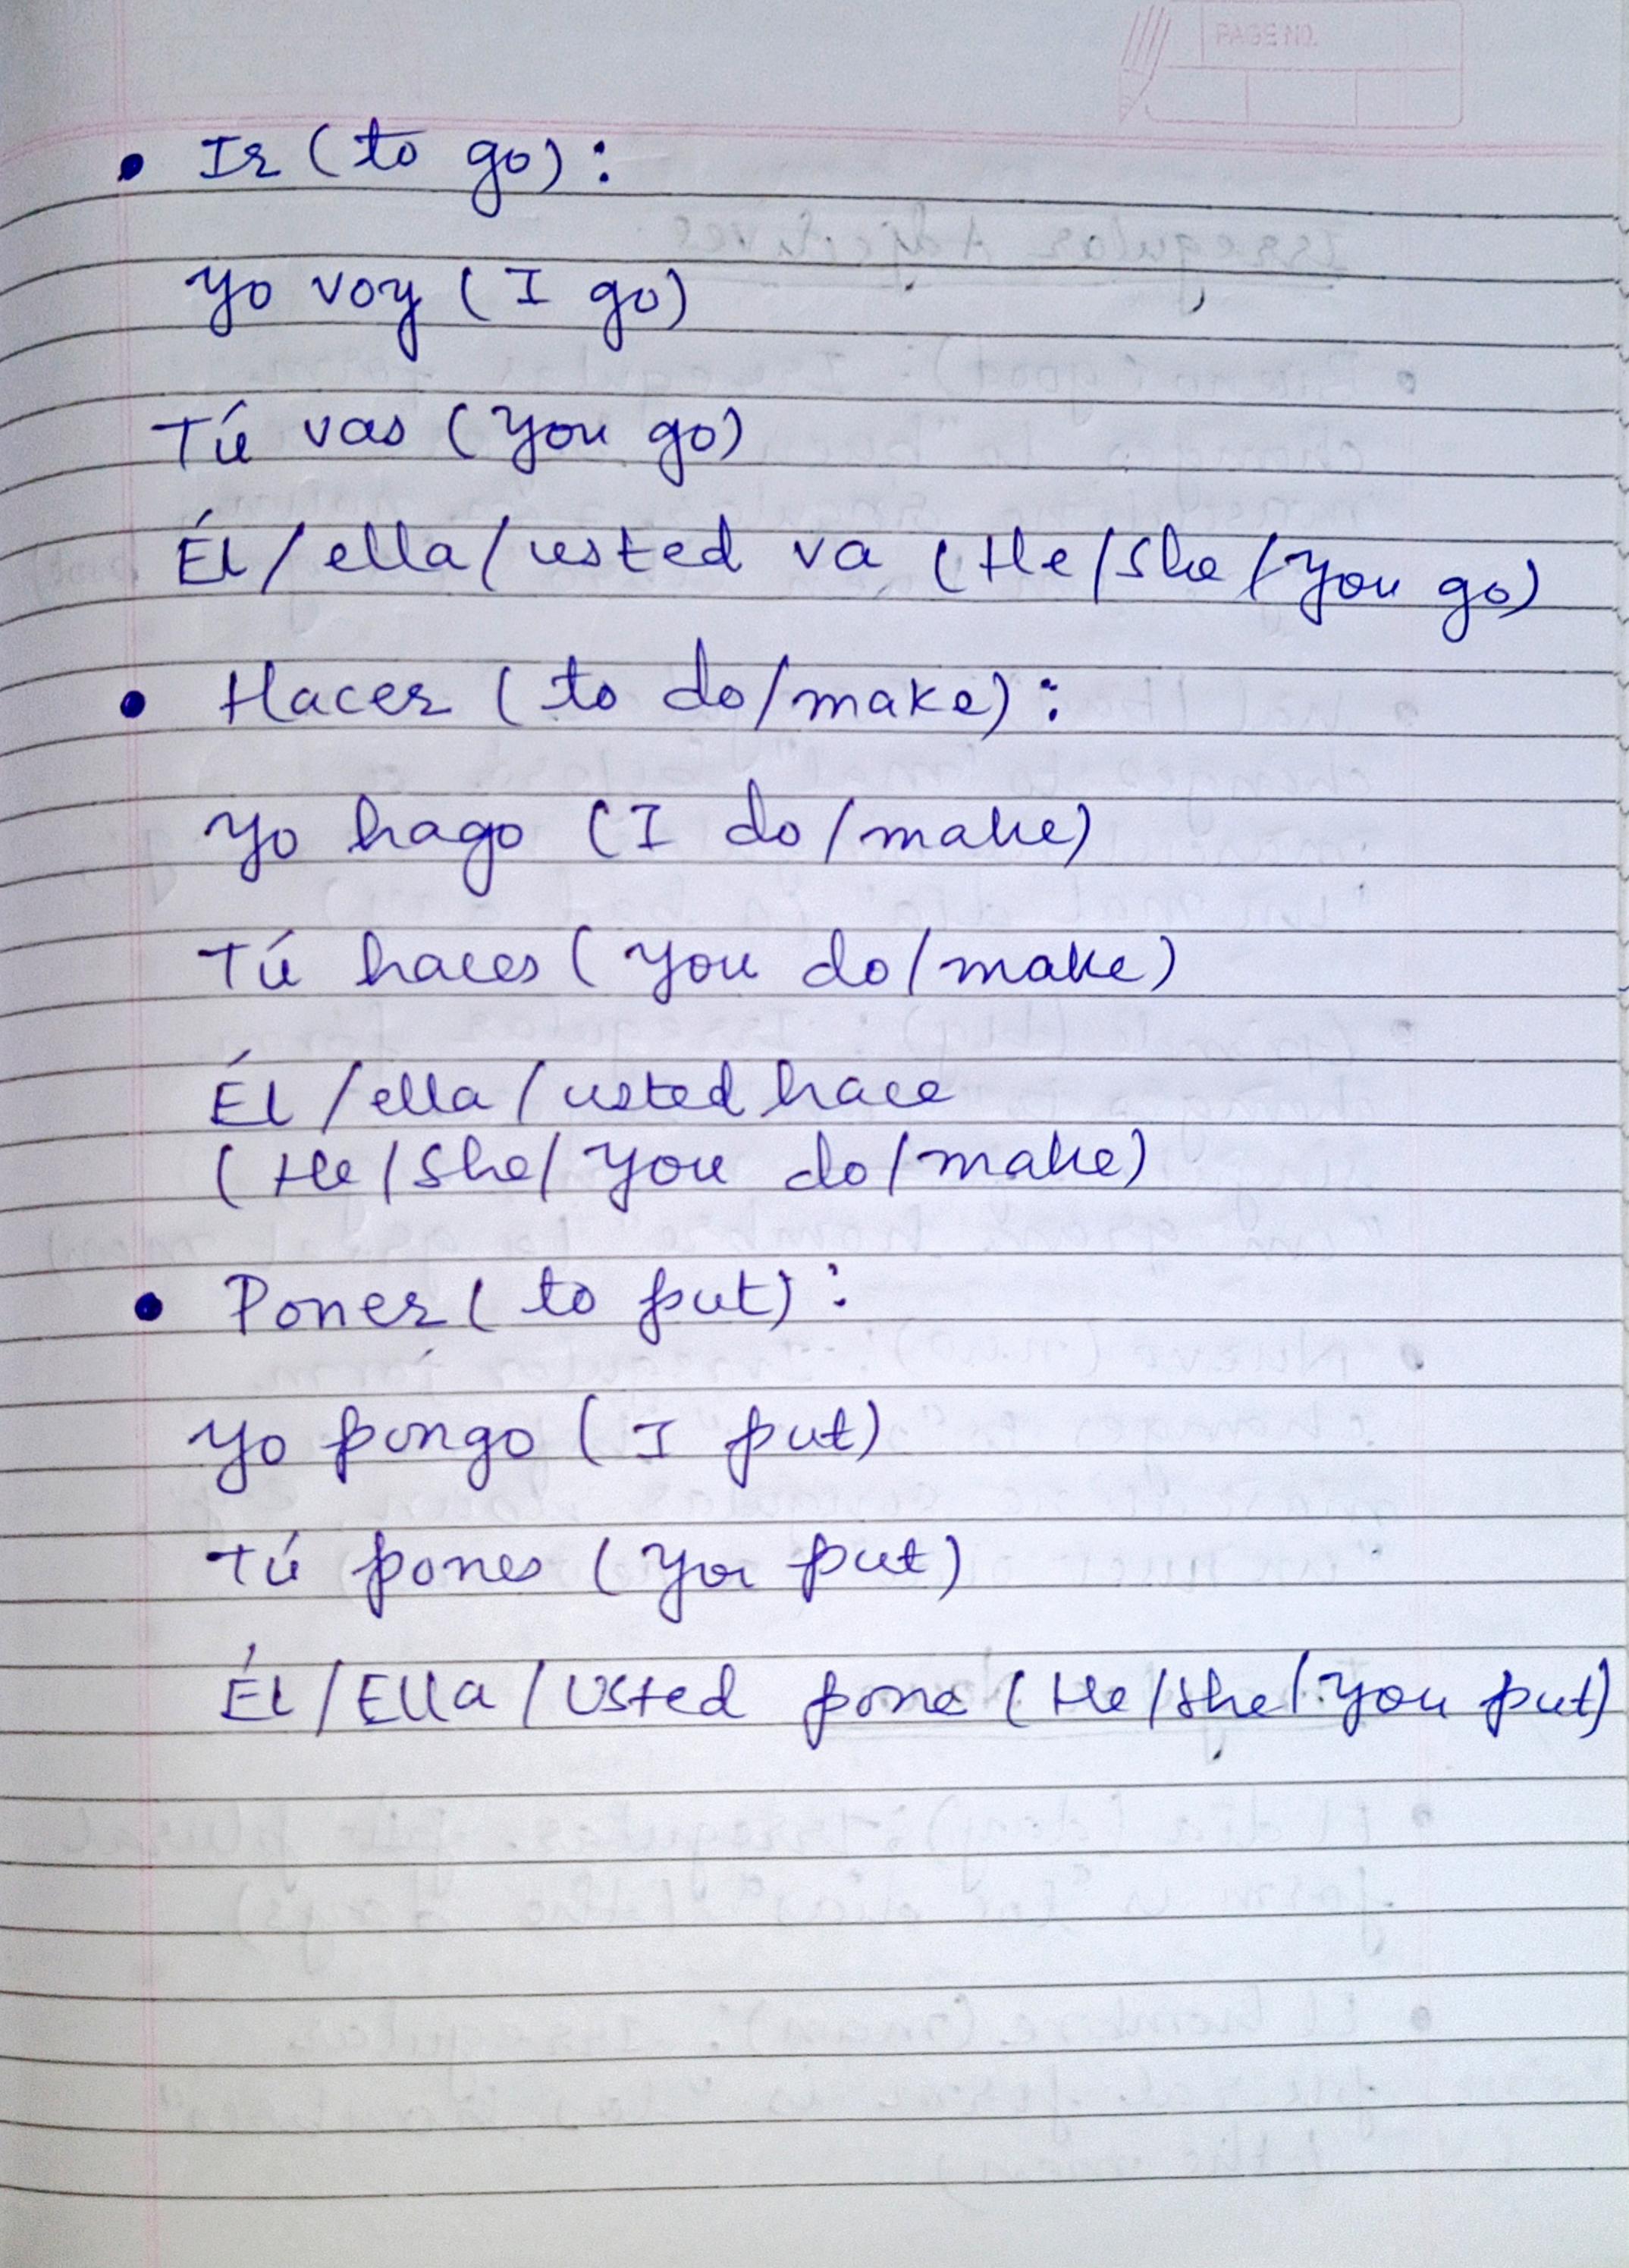 PAGE NO.
• Ir (to go):
Yo voy (I go)
Tú vas (You go)
Él/ella/usted va (He/She/You go)
• Hacer (to do/make):
Yo hago (I do/make)
Tú haces (You do/make)
Él/ella/usted hace
(He/She/You do/make)
• Poner (to put):
Yo pongo (I put)
Tú pones (You put)
Él/Ella/Usted pone (He/She/You put)